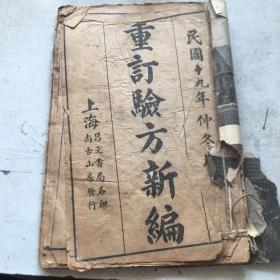 民國十九年仲冬
重訂驗方新編
上海
昌文書局石印
尚古山房發行